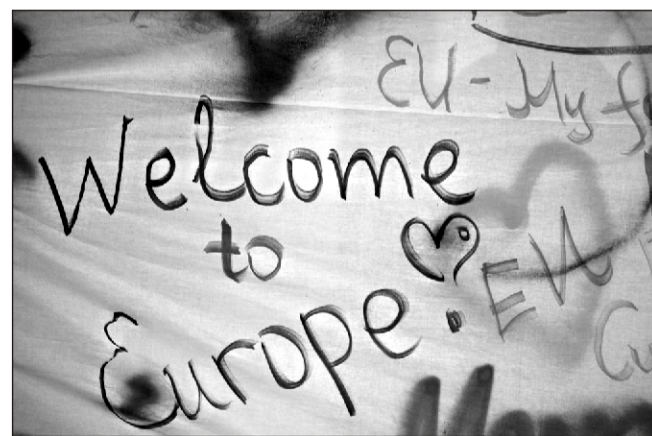 EU - My
Welcome
to
Europe.
EU